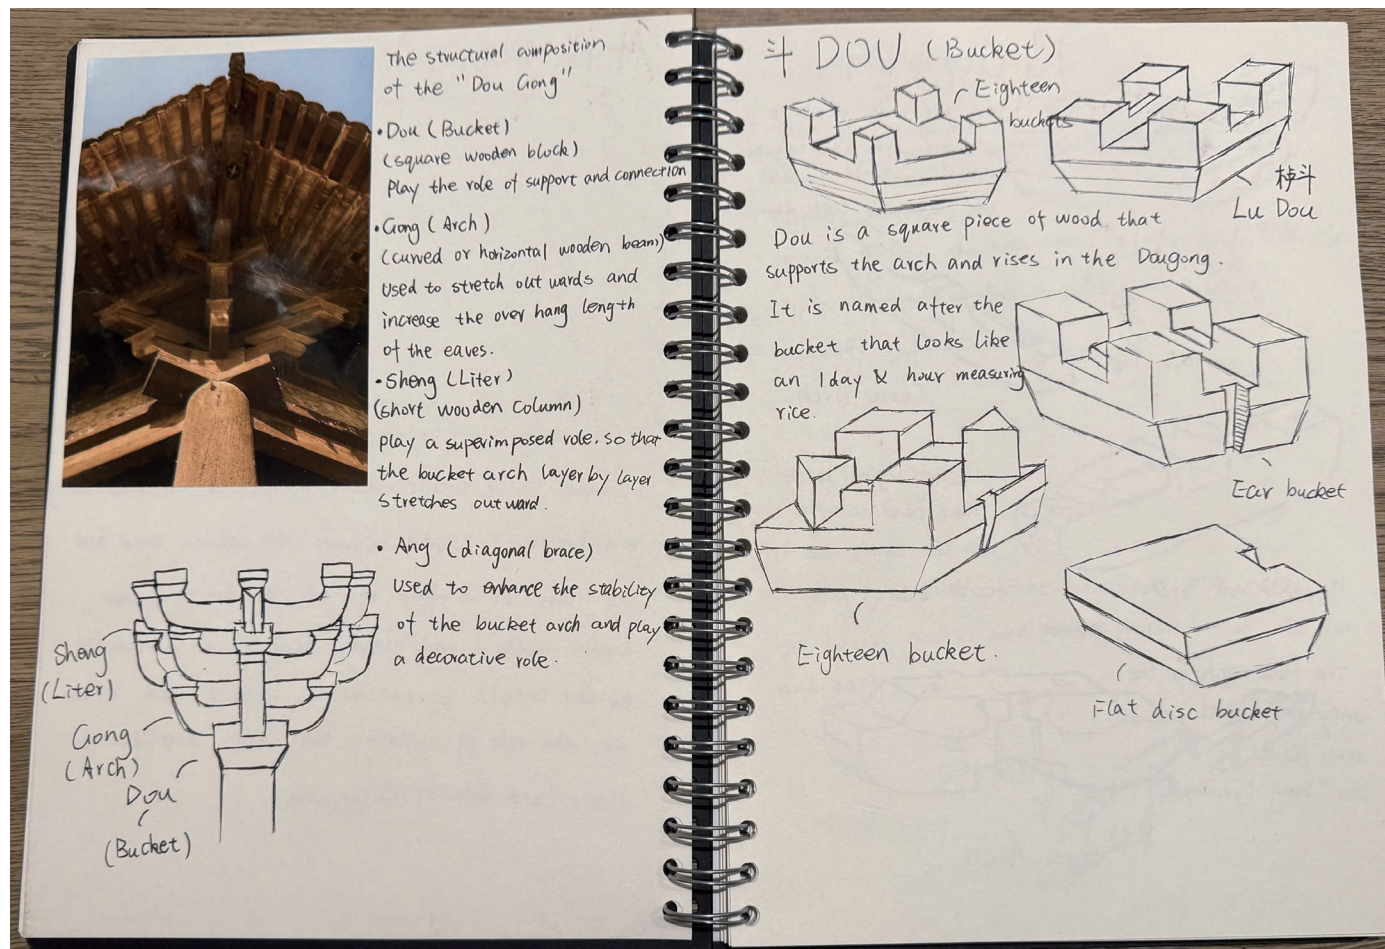 The structural composition
of the "Dou Gong"
• Dou (Bucket)
(square wooden block)
Play the role of support and connection
• Gong (Arch)
(curved or horizontal wooden beams)
used to stretch out wards and
increase the over hang length
of the eaves.
• Sheng (Liter)
(short wooden column)
play a superimposed role. so that
the bucket arch layer by layer
stretches outward.
• Ang (diagonal brace)
used to enhance the stability
of the bucket arch and play
a decorative role.
Sheng
(Liter)
Gong
(Arch)
Dou
(Bucket)
斗 DOU (Bucket)
Eighteen
buckets
Lu Dou
Dou is a square piece of wood that
supports the arch and rises in the Dougong.
It is named after the
bucket that looks like
an 1day & hour measuring
rice.
Ear bucket
Eighteen bucket.
Flat disc bucket